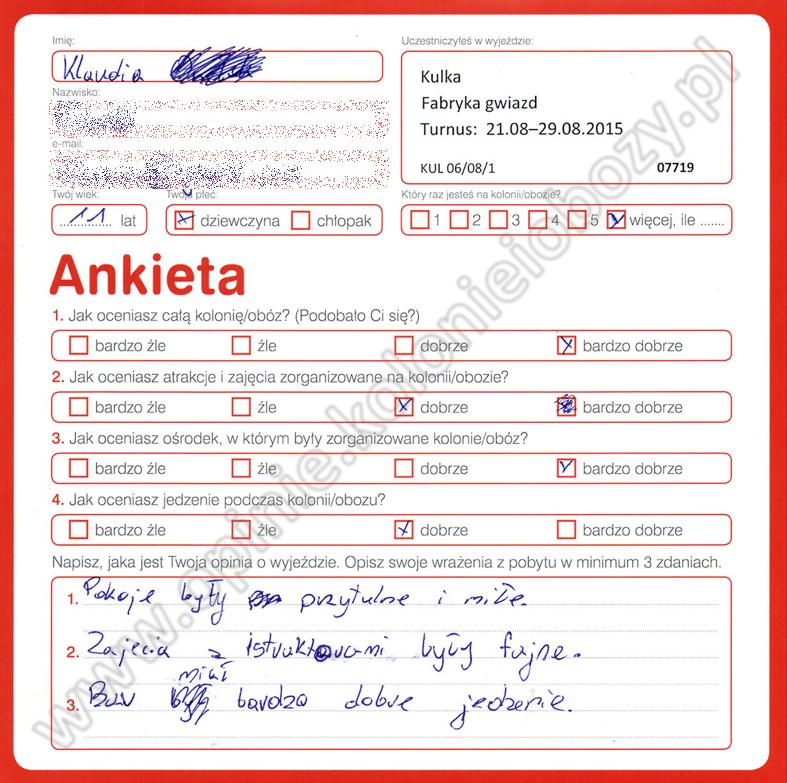 Imię:
Uczestniczyłeś w wyjeździe:
Klaudia
Kulka
Fabryka gwiazd
Turnus: 21.08–29.08.2015
KUL 06/08/1 07719
Nazwisko:
e-mail:
Twój wiek: Twoja płeć: Który raz jesteś na kolonii/obozie?
11 lat dziewczyna chłopak 1 2 3 4 5 więcej, ile .......
Ankieta
1. Jak oceniasz całą kolonię/obóz? (Podobało Ci się?)
bardzo źle źle dobrze bardzo dobrze
2. Jak oceniasz atrakcje i zajęcia zorganizowane na kolonii/obozie?
bardzo źle źle dobrze bardzo dobrze
3. Jak oceniasz ośrodek, w którym były zorganizowane kolonie/obóz?
bardzo źle źle dobrze bardzo dobrze
4. Jak oceniasz jedzenie podczas kolonii/obozu?
bardzo źle źle dobrze bardzo dobrze
Napisz, jaka jest Twoja opinia o wyjeździe. Opisz swoje wrażenia z pobytu w minimum 3 zdaniach.
1. Pokoje były przytulne i miłe.
2. Zajęcia z istruktorami były fajne.
3. Bar miał bardzo dobre jedzenie.
www.opinie.kolonieiobozy.pl